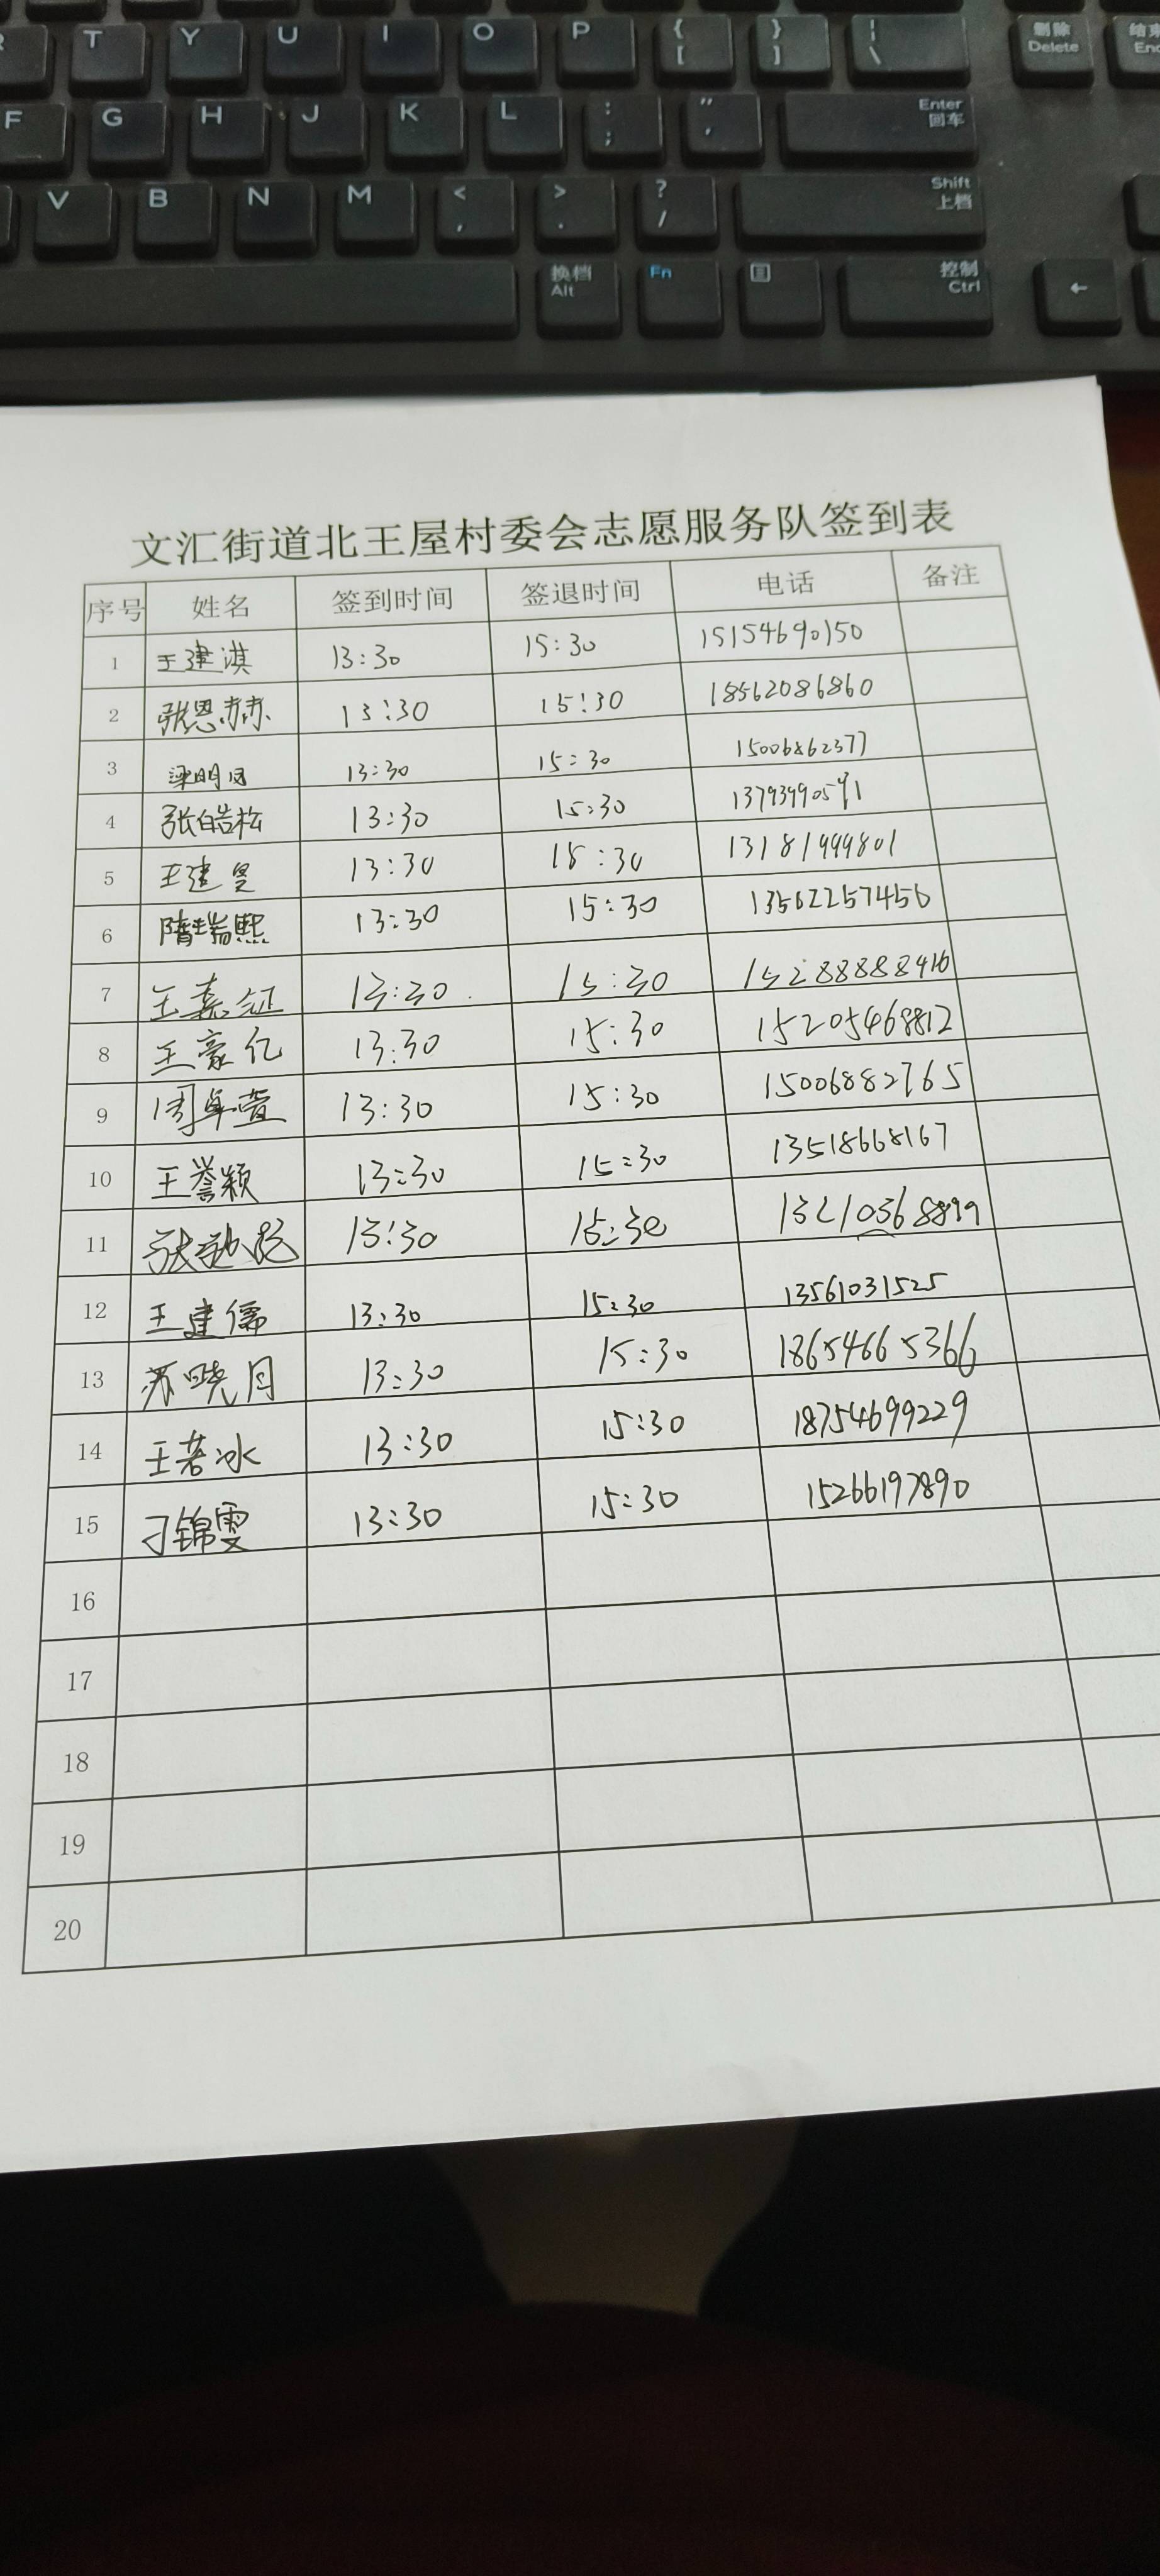 T Y U I O P { [ } ] | \ 删除 Delete 结束 End
F G H J K L : ; " ' Enter 回车
V B N M < , > . ? / Shift 上档
换档 Alt Fn 控制 Ctrl ←
文汇街道北王屋村委会志愿服务队签到表
序号 姓名 签到时间 签退时间 电话 备注
1 王建淇 13:30 15:30 15154690150
2 张恩赫 13:30 15:30 18562086860
3 梁明 13:30 15:30 15006862377
4 张皓松 13:30 15:30 13793990591
5 王建昱 13:30 15:30 13181999801
6 隋瑞熙 13:30 15:30 13562257456
7 王嘉征 13:30 15:30 15288888416
8 王豪亿 13:30 15:30 15205468812
9 周卓萱 13:30 15:30 15006882765
10 王誉颖 13:30 15:30 13518668167
11 张 13:30 15:30
12 王建儒 13:30 15:30 13561031525
13 苏晓月 13:30 15:30 18654665366
14 王若冰 13:30 15:30 18754699229
15 刁锦雯 13:30 15:30 15266197890
16
17
18
19
20